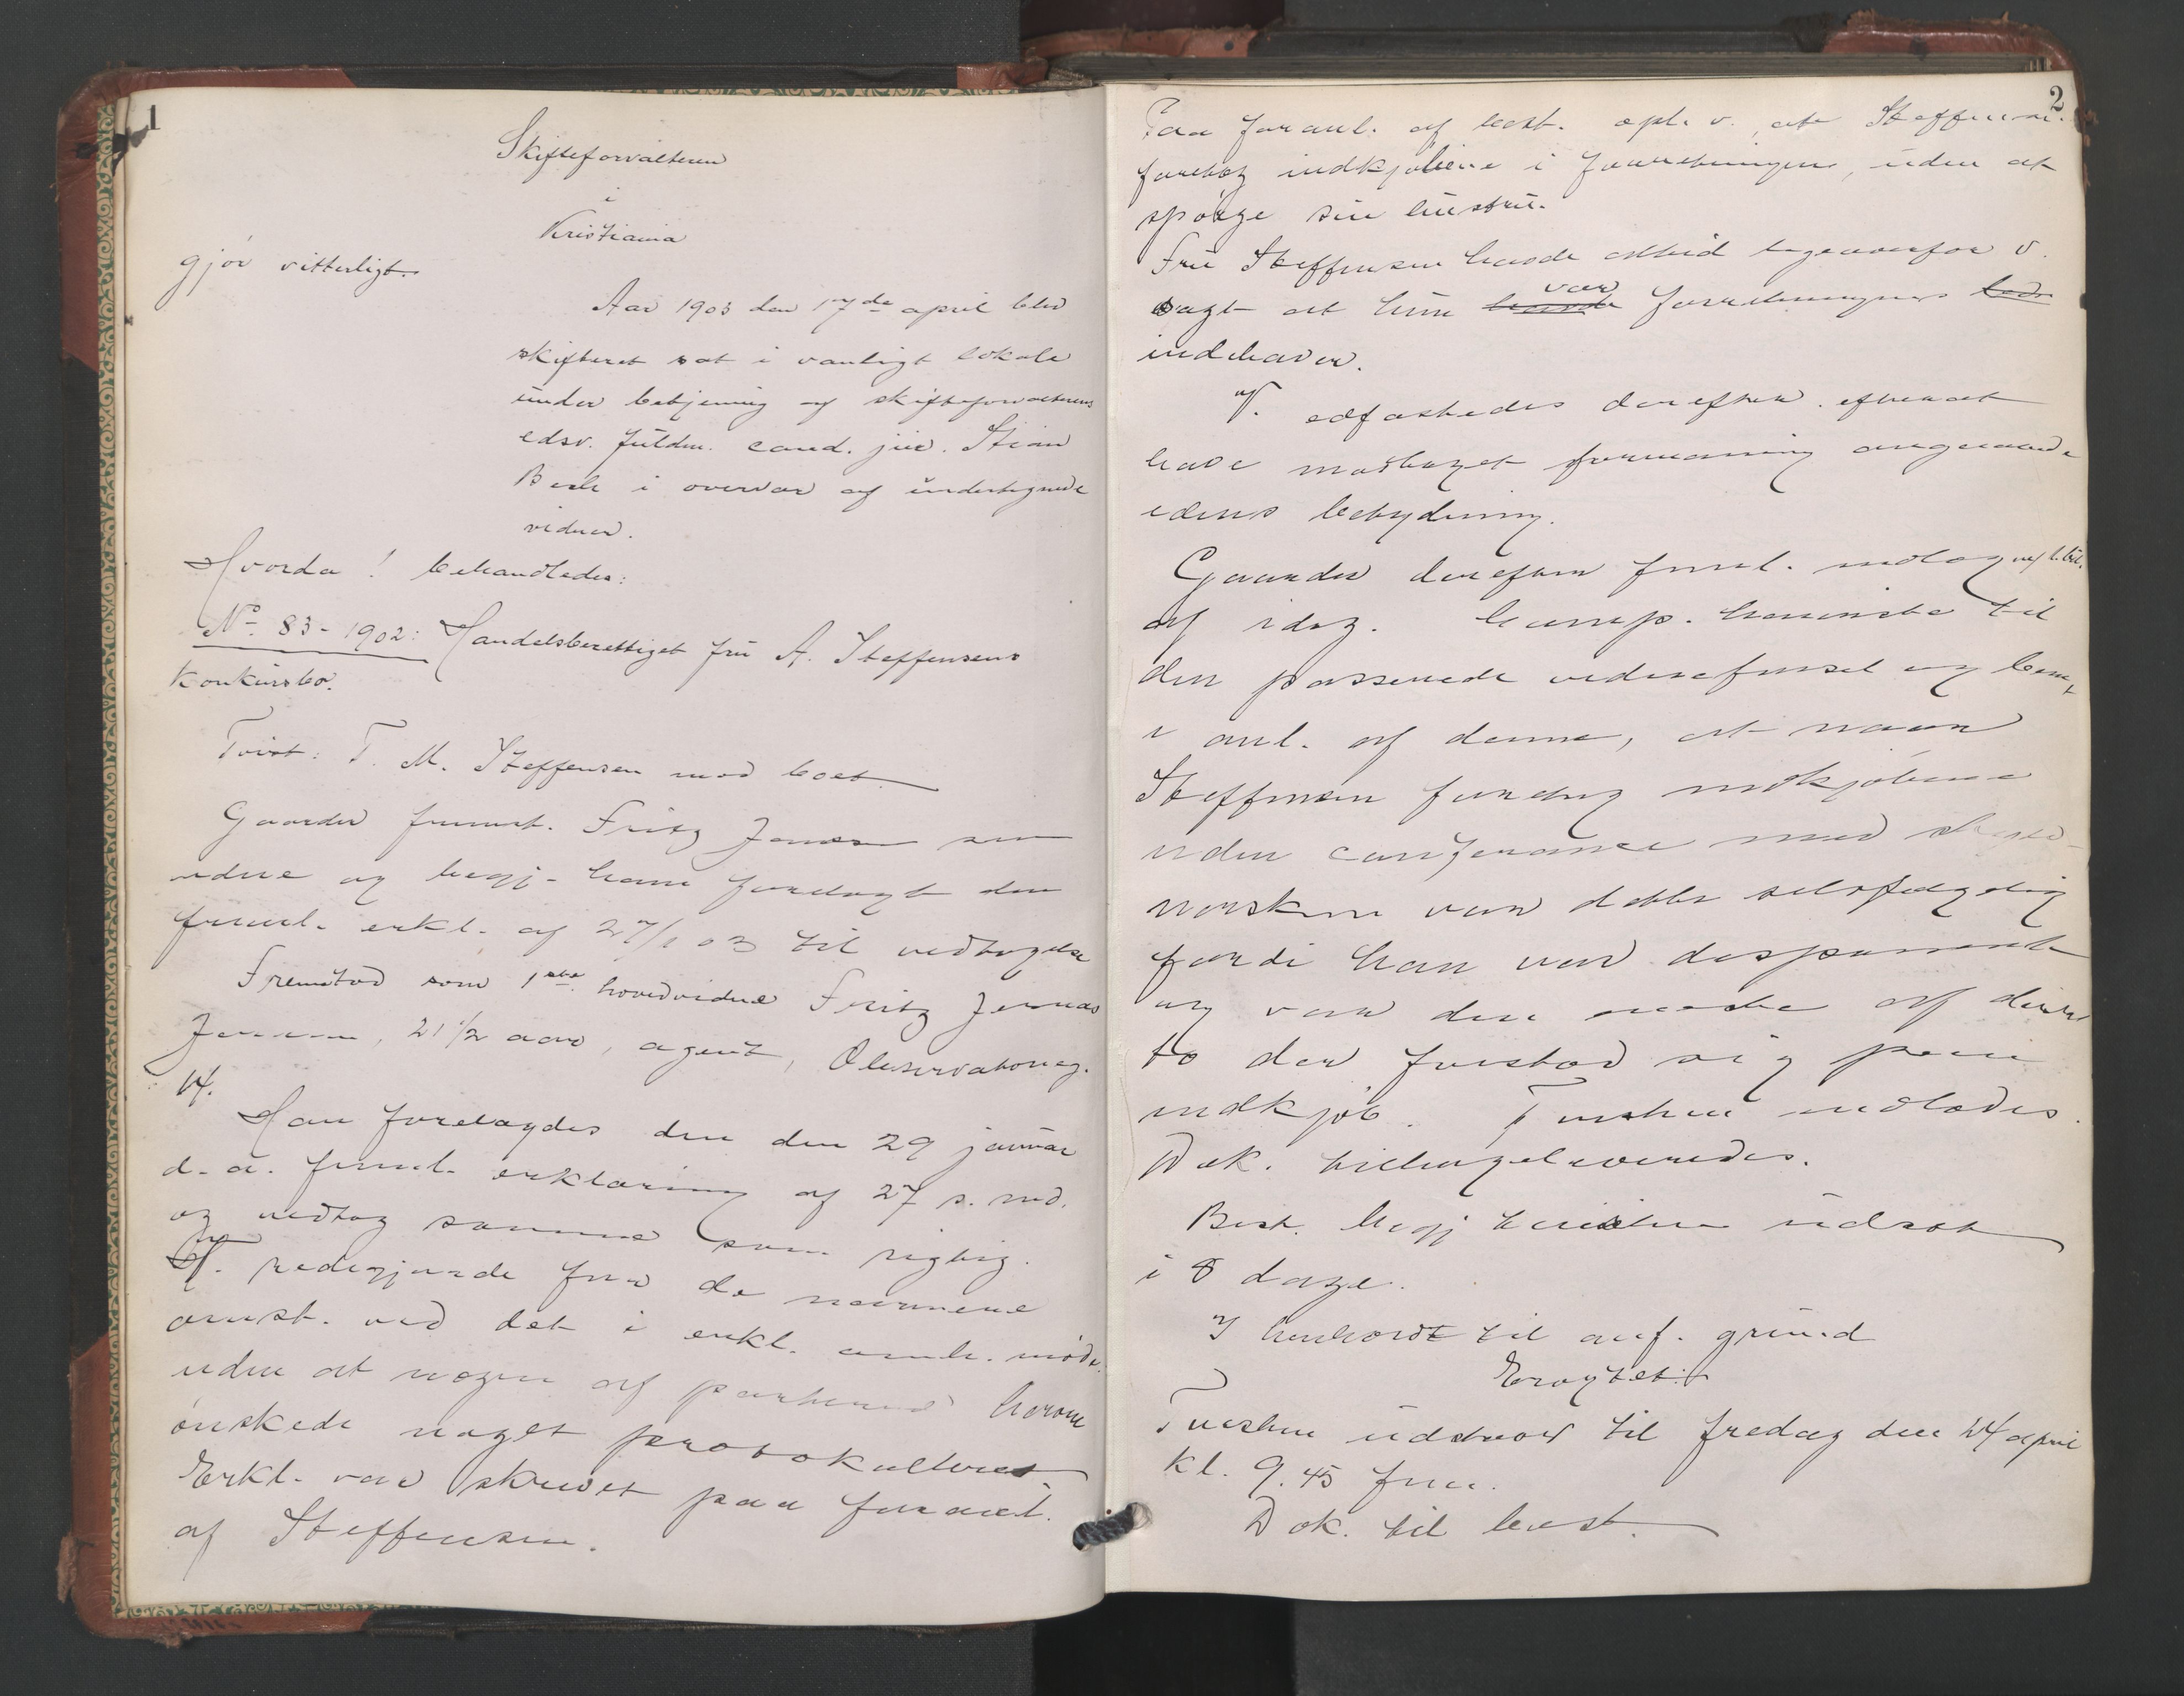 1
Skifteforvalteren
i
Kristiania
gjör vitterligt.
Aar 1903 den 17de april blev
skifteret sat i vanligt lokale
under betjening af skifteforvalterens
edsv. fuldm. cand. jur. Stian
Bech i overvær af undertegnede
vidner.
Hvorda! behandledes:
No. 83-1902: Handelsberettiget fru A. Steffensens
konkursbo.
Tvist: T. M. Steffensen mod boet.
Gaarder fremst. Fritz Jensen som
vidne og begj. ham forelagt den
freml. erkl. af 27/1 03 til vedtagelse
Fremstod som 1ste hovedvidne Fritz Jonas
Jensen, 21 1/2 aar, agent, Observatorieg.
14.
Han forelagdes den den 29 januar
d. a. freml. erklæring af 27 s. md.
og vedtog samme som rigtig.
V. redegjorde for de nærmere
omst. ved det i erkl. omh. möde,
uden at nogen af parterne herom
önskede noget protokolleret.
Erkl. var skrevet paa foranl.
af Steffensen.
2
Paa foranl. af best. opl. v., at Steffensen
foretog indkjöbene i forretningen, uden at
spörge sin hustru.
Fru Steffensen havde altid ligeoverfor v.
sagt at hun havde var forretningens beds
indehaver.
V. edfæstedes derefter efter at
have modtaget formaning angaaende
edens betydning.
Gaarder derefter freml. indlæg
af idag. Comp. henviste til
den passerede vidneförsel og bem.
i anl. af denne, at naar
Steffensen foretog indkjöbene
uden conferance med
var dette selvfølgelig
fordi han var disponent
og var den eneste af disse
to der forstod sig paa
indkjöb. Tvisten indlodes.
Dok. tilbageleveredes.
Best. begj tvisten udsat
i 8 dage.
I henhold til anf. grund
Eragtet:
Tvisten udstaar til fredag den 24 april
kl. 9.45 fm.
Dok. til best.